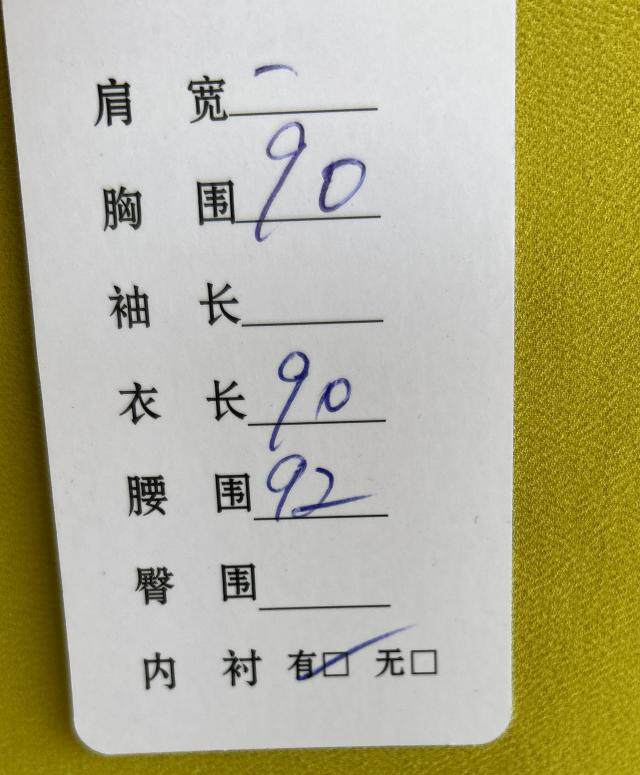 肩宽 一
胸围 90
袖长
衣长 90
腰围 92
臀围
内衬 有☑ 无□